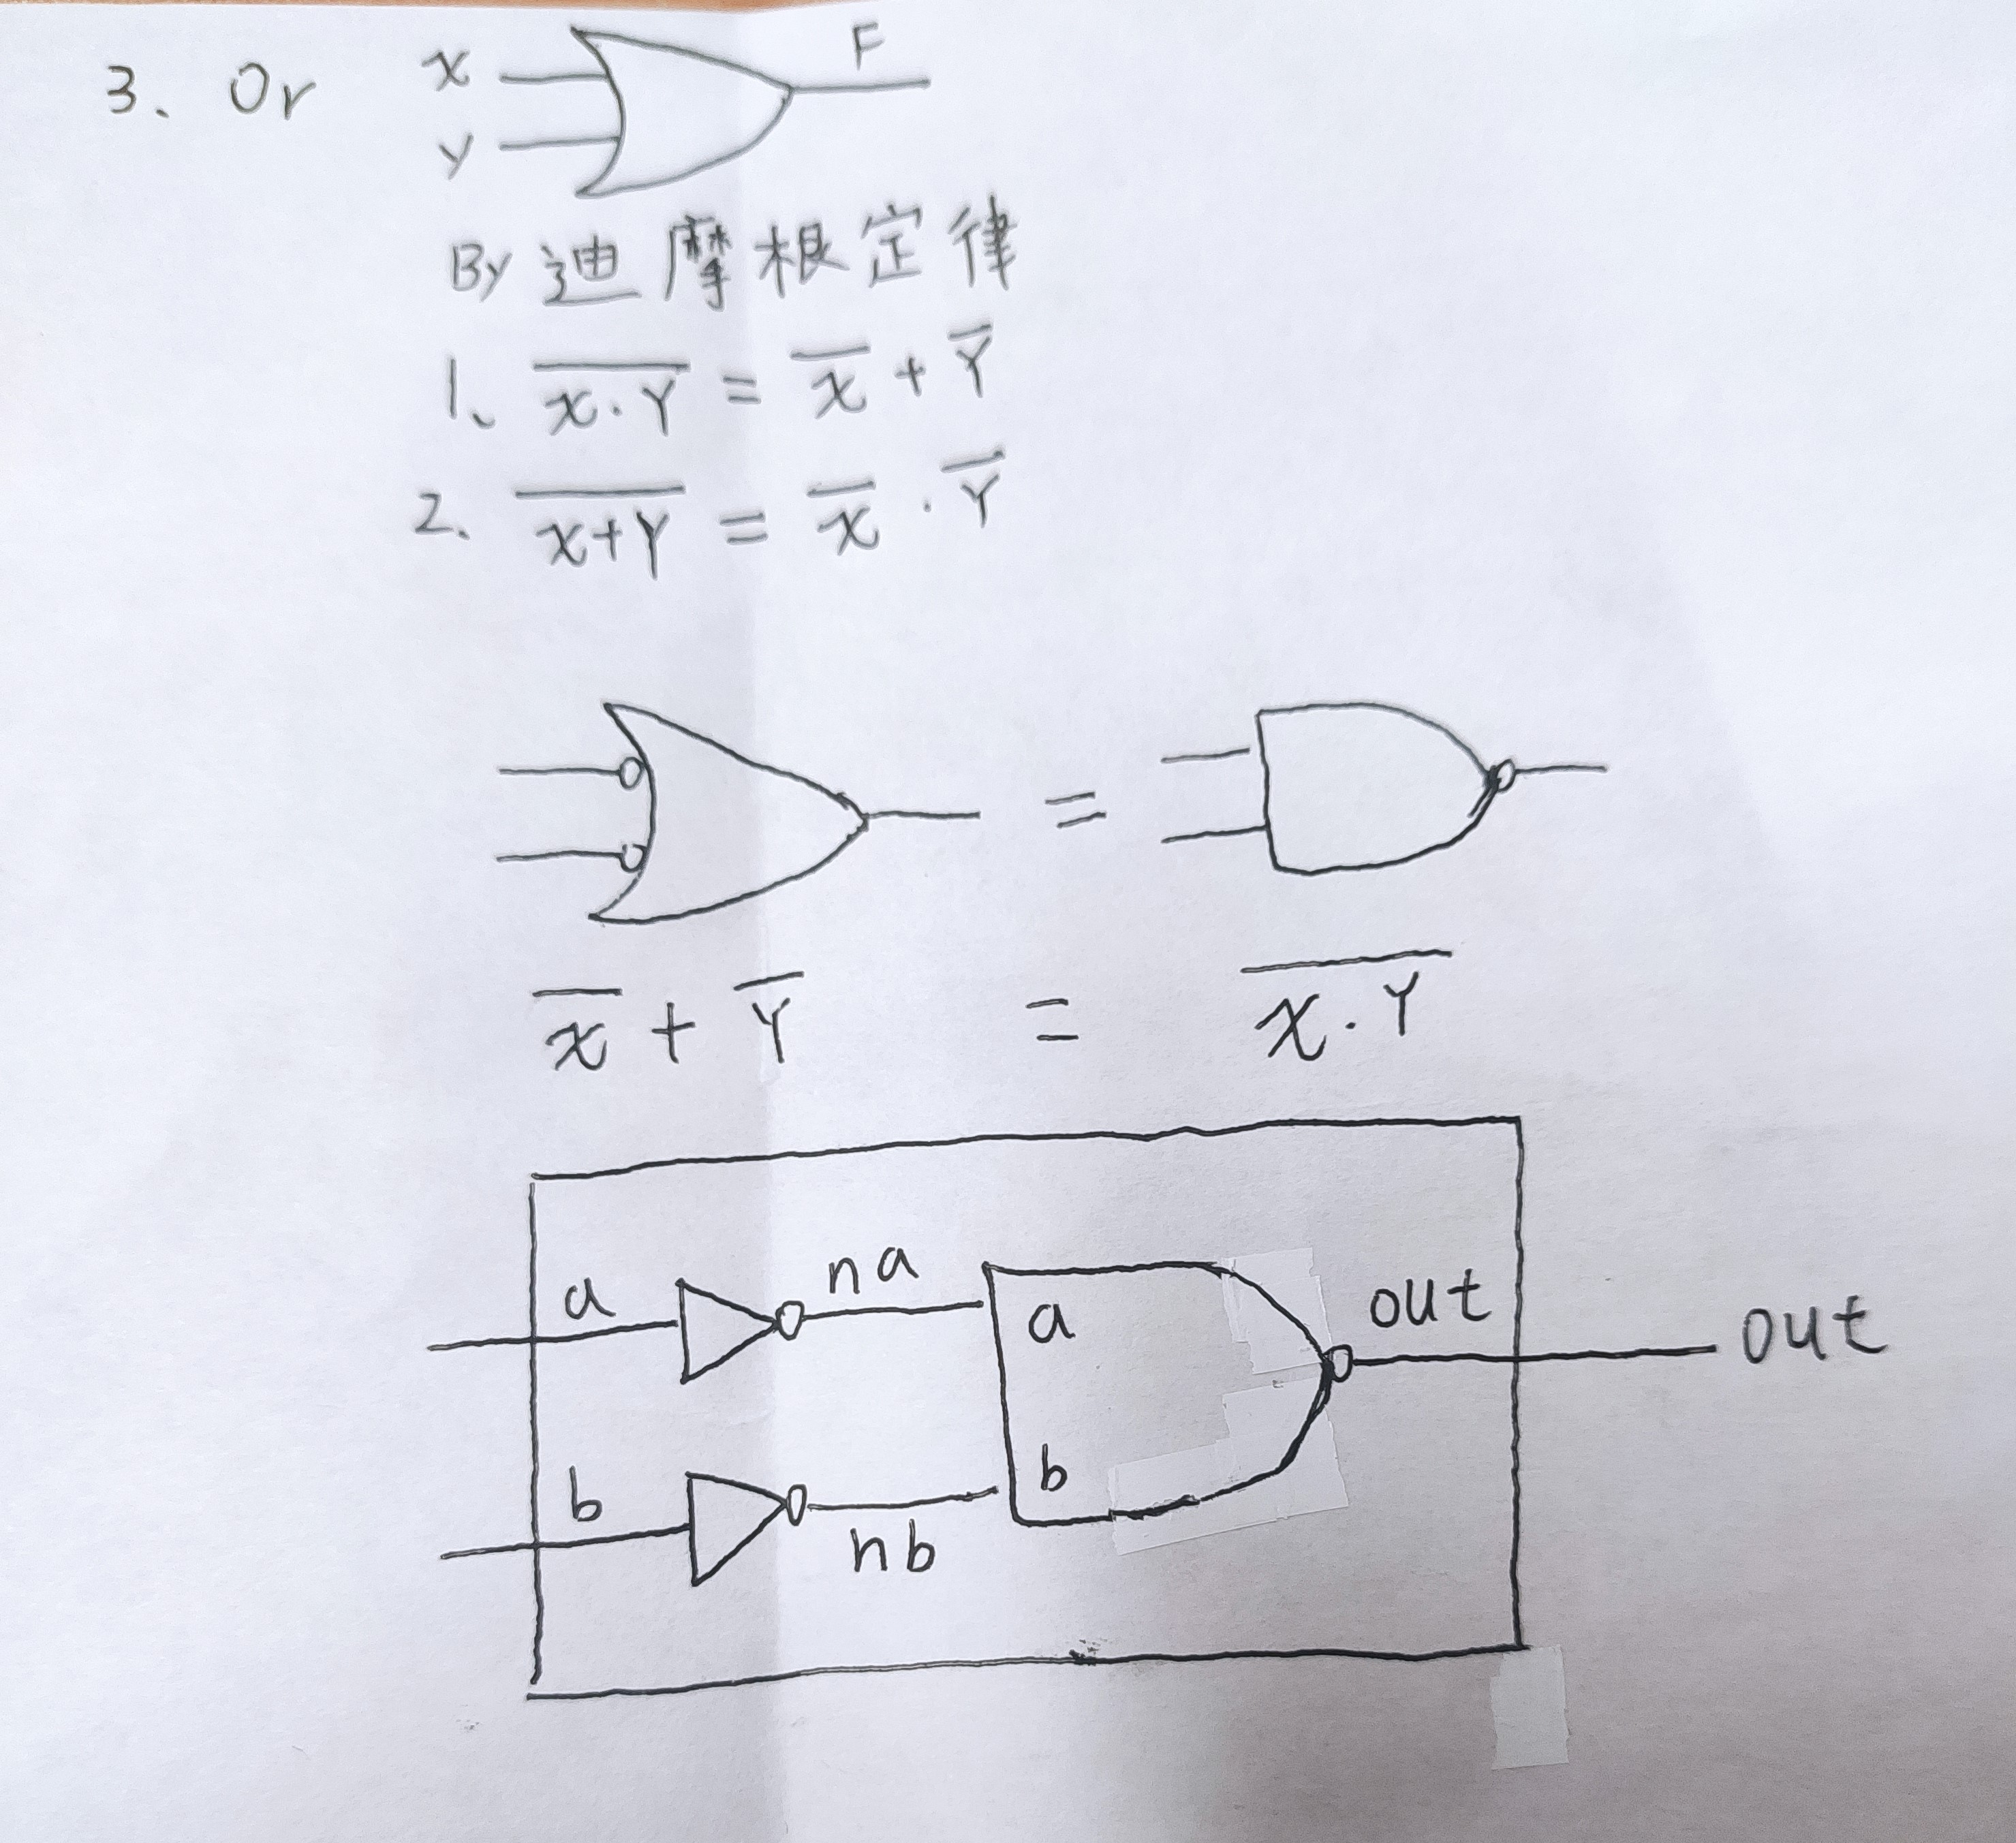 3. Or
x F
y
By 迪摩根定律
1、 \overline{x·Y} = \overline{x} + \overline{Y}
2. \overline{x+Y} = \overline{x} · \overline{Y}
=
\overline{x} + \overline{Y} = \overline{x·Y}
a na a out out
b nb b